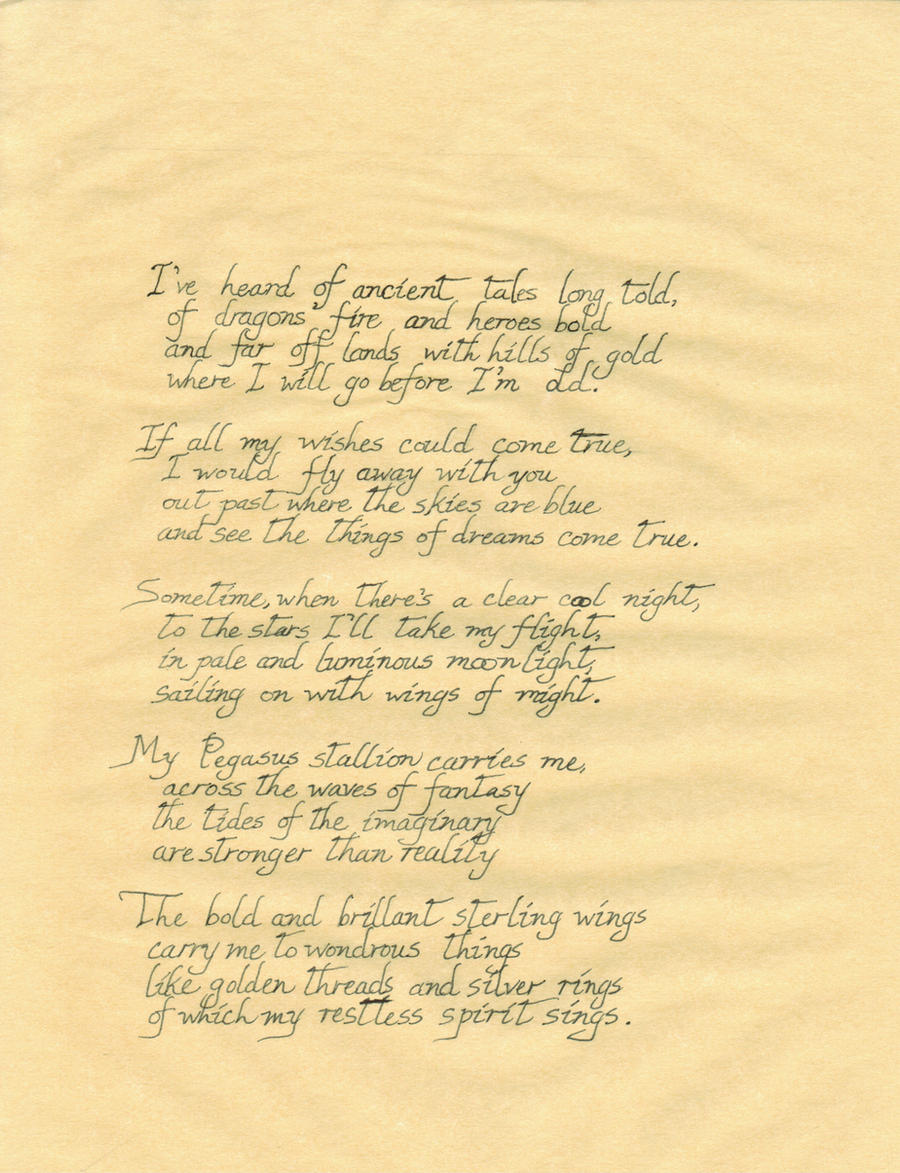 I've heard of ancient tales long told,
of dragons' fire and heroes bold
and far off lands with hills of gold
where I will go before I'm old.
If all my wishes could come true,
I would fly away with you
out past where the skies are blue
and see the things of dreams come true.
Sometime, when there's a clear cool night,
to the stars I'll take my flight,
in pale and luminous moonlight,
sailing on with wings of might.
My Pegasus stallion carries me,
across the waves of fantasy
the tides of the imaginary
are stronger than reality
The bold and brillant sterling wings
carry me to wondrous things
like golden threads and silver rings
of which my restless spirit sings.